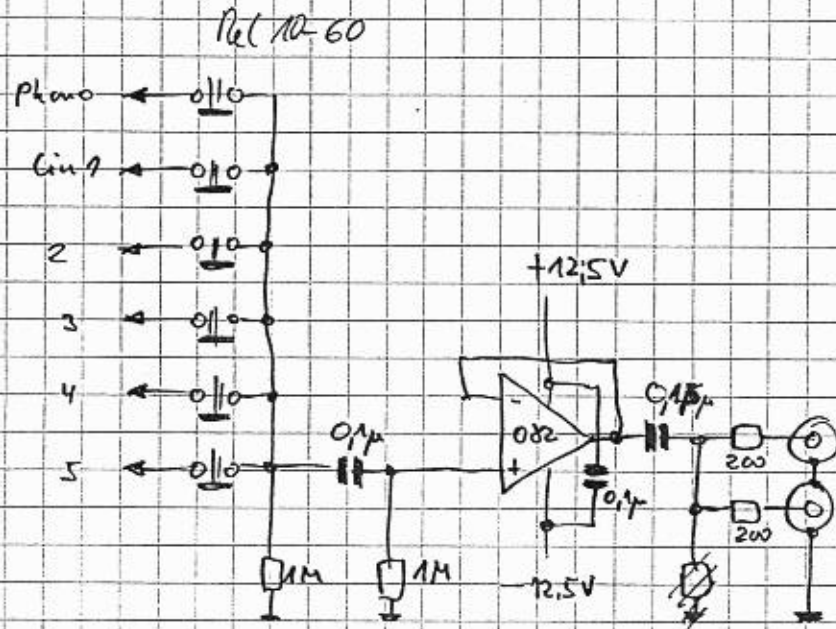 Rel 10-60
Phono
Lin 1
2
3
4
5
+12,5V
0,1µ
-
082
+
0,1µ
200
200
1M
1M
-12,5V